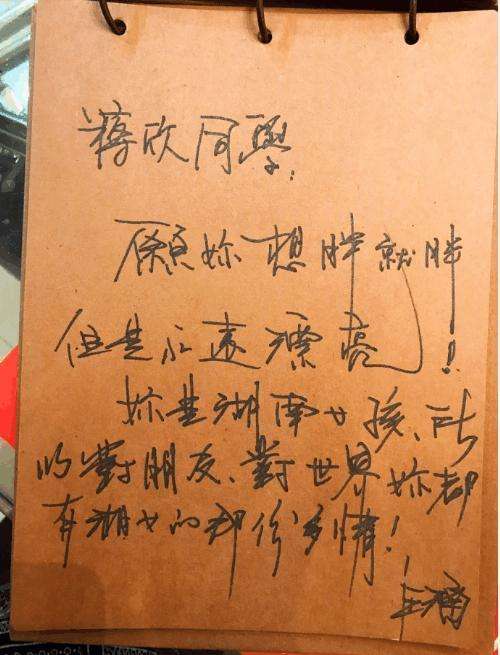 蔣欣同學:
願妳想胖就胖
但是永遠漂亮!
妳是湖南女孩、所
以對朋友、對世界妳都
有湖女的那份多情!
汪涵